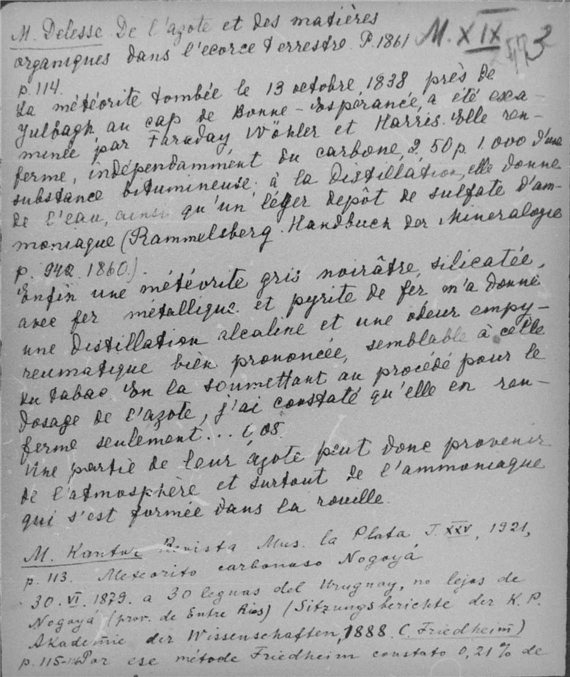 M. Delesse De l'azote et des matières
organiques dans l'ecorce terrestre. P. 1861
M. XIX
p. 114.
La météorite tombée le 13 octobre, 1838 près de
Julbagh au cap de Bonne-Esperance, a été exa-
minée par Faraday Wöhler et Harris. Elle ren-
ferme, indépendamment du carbone, 2,50 p. 1.000 d'une
substance bitumineuse. à la distillation, elle donne
de l'eau, ainsi qu'un léger depôt de sulfate d'am-
moniaque (Rammelsberg. Handbuch der Mineralogie
p. 942. 1860.).
Enfin une météorite gris noirâtre, silicatée,
avec fer métallique et pyrite de fer m'a donné
une distillation alcaline et une odeur empy-
reumatique bien prononcée, semblable à celle
du tabac. En la soumettant au procédé pour le
dosage de l'azote, j'ai constaté qu'elle en ren-
ferme seulement... 0,08.
Une partie de leur azote peut donc provenir
de l'atmosphère et surtout de l'ammoniaque
qui s'est formée dans la rouille.
M. Kantor Revista Mus. la Plata, T. XXV, 1921,
p. 113. Meteorito carbonoso Nogoyá
30. VI. 1879. a 30 leguas del Uruguay, no lejos de
Nogoyá (prov. de Entre Rios) (Sitzungsberichte der K. P.
Akademie der Wissenschaften, 1888. C. Friedheim)
p. 115- Por ese métode Friedheim constato 0,21% de